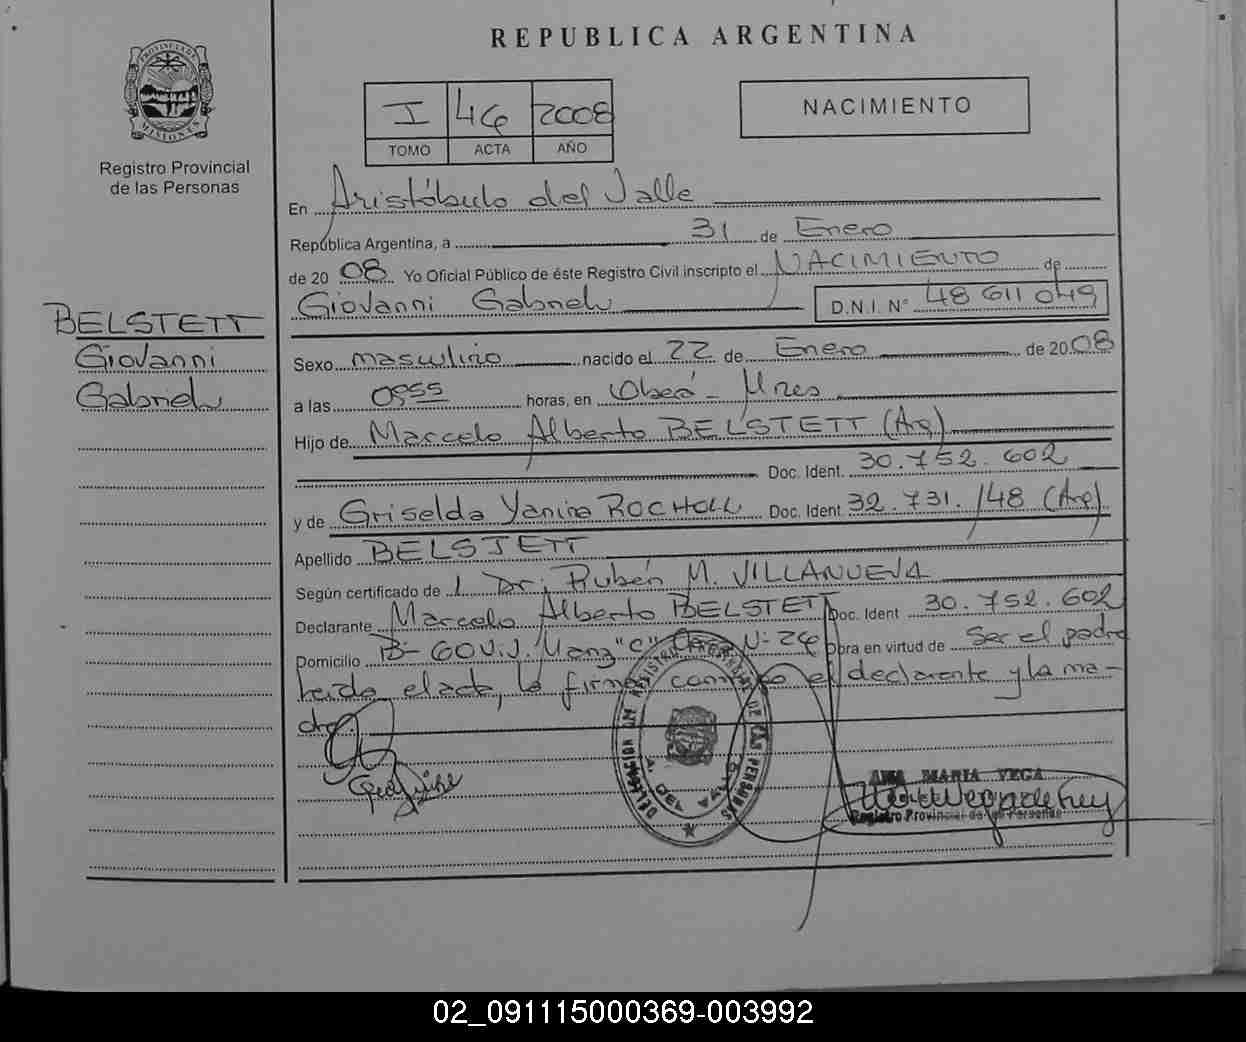 REPUBLICA ARGENTINA
PROVINCIA DE MISIONES
Registro Provincial
de las Personas
I 46 2008
TOMO ACTA AÑO
NACIMIENTO
En Aristóbulo del Valle
República Argentina, a 31 de Enero
de 2008. Yo Oficial Público de éste Registro Civil inscripto el NACIMIENTO de
Giovanni Gabriel D.N.I. N° 48 611 049
BELSTETT
Giovanni
Gabriel
Sexo masculino nacido el 22 de Enero de 2008
a las 0955 horas, en Oberá - Mnes
Hijo de Marcelo Alberto BELSTETT (Arg)
Doc. Ident. 30.752.602
y de Griselda Yanina ROCHOLL Doc. Ident. 32.731.148 (Arg)
Apellido BELSTETT
Según certificado de Dr. Rubén M. VILLANUEVA
Declarante Marcelo Alberto BELSTETT Doc. Ident 30.752.602
Domicilio B- 60 Viv. Manz "C" Casa N- 26 Obra en virtud de ser el padre
leida el acta, la firman conmigo el declarante y la ma-
dre
DELEGACION REGISTRO PROVINCIAL DE LAS PERSONAS
A. DEL VALLE
ANA MARIA VEGA
Registro Provincial de las Personas
02_091115000369-003992